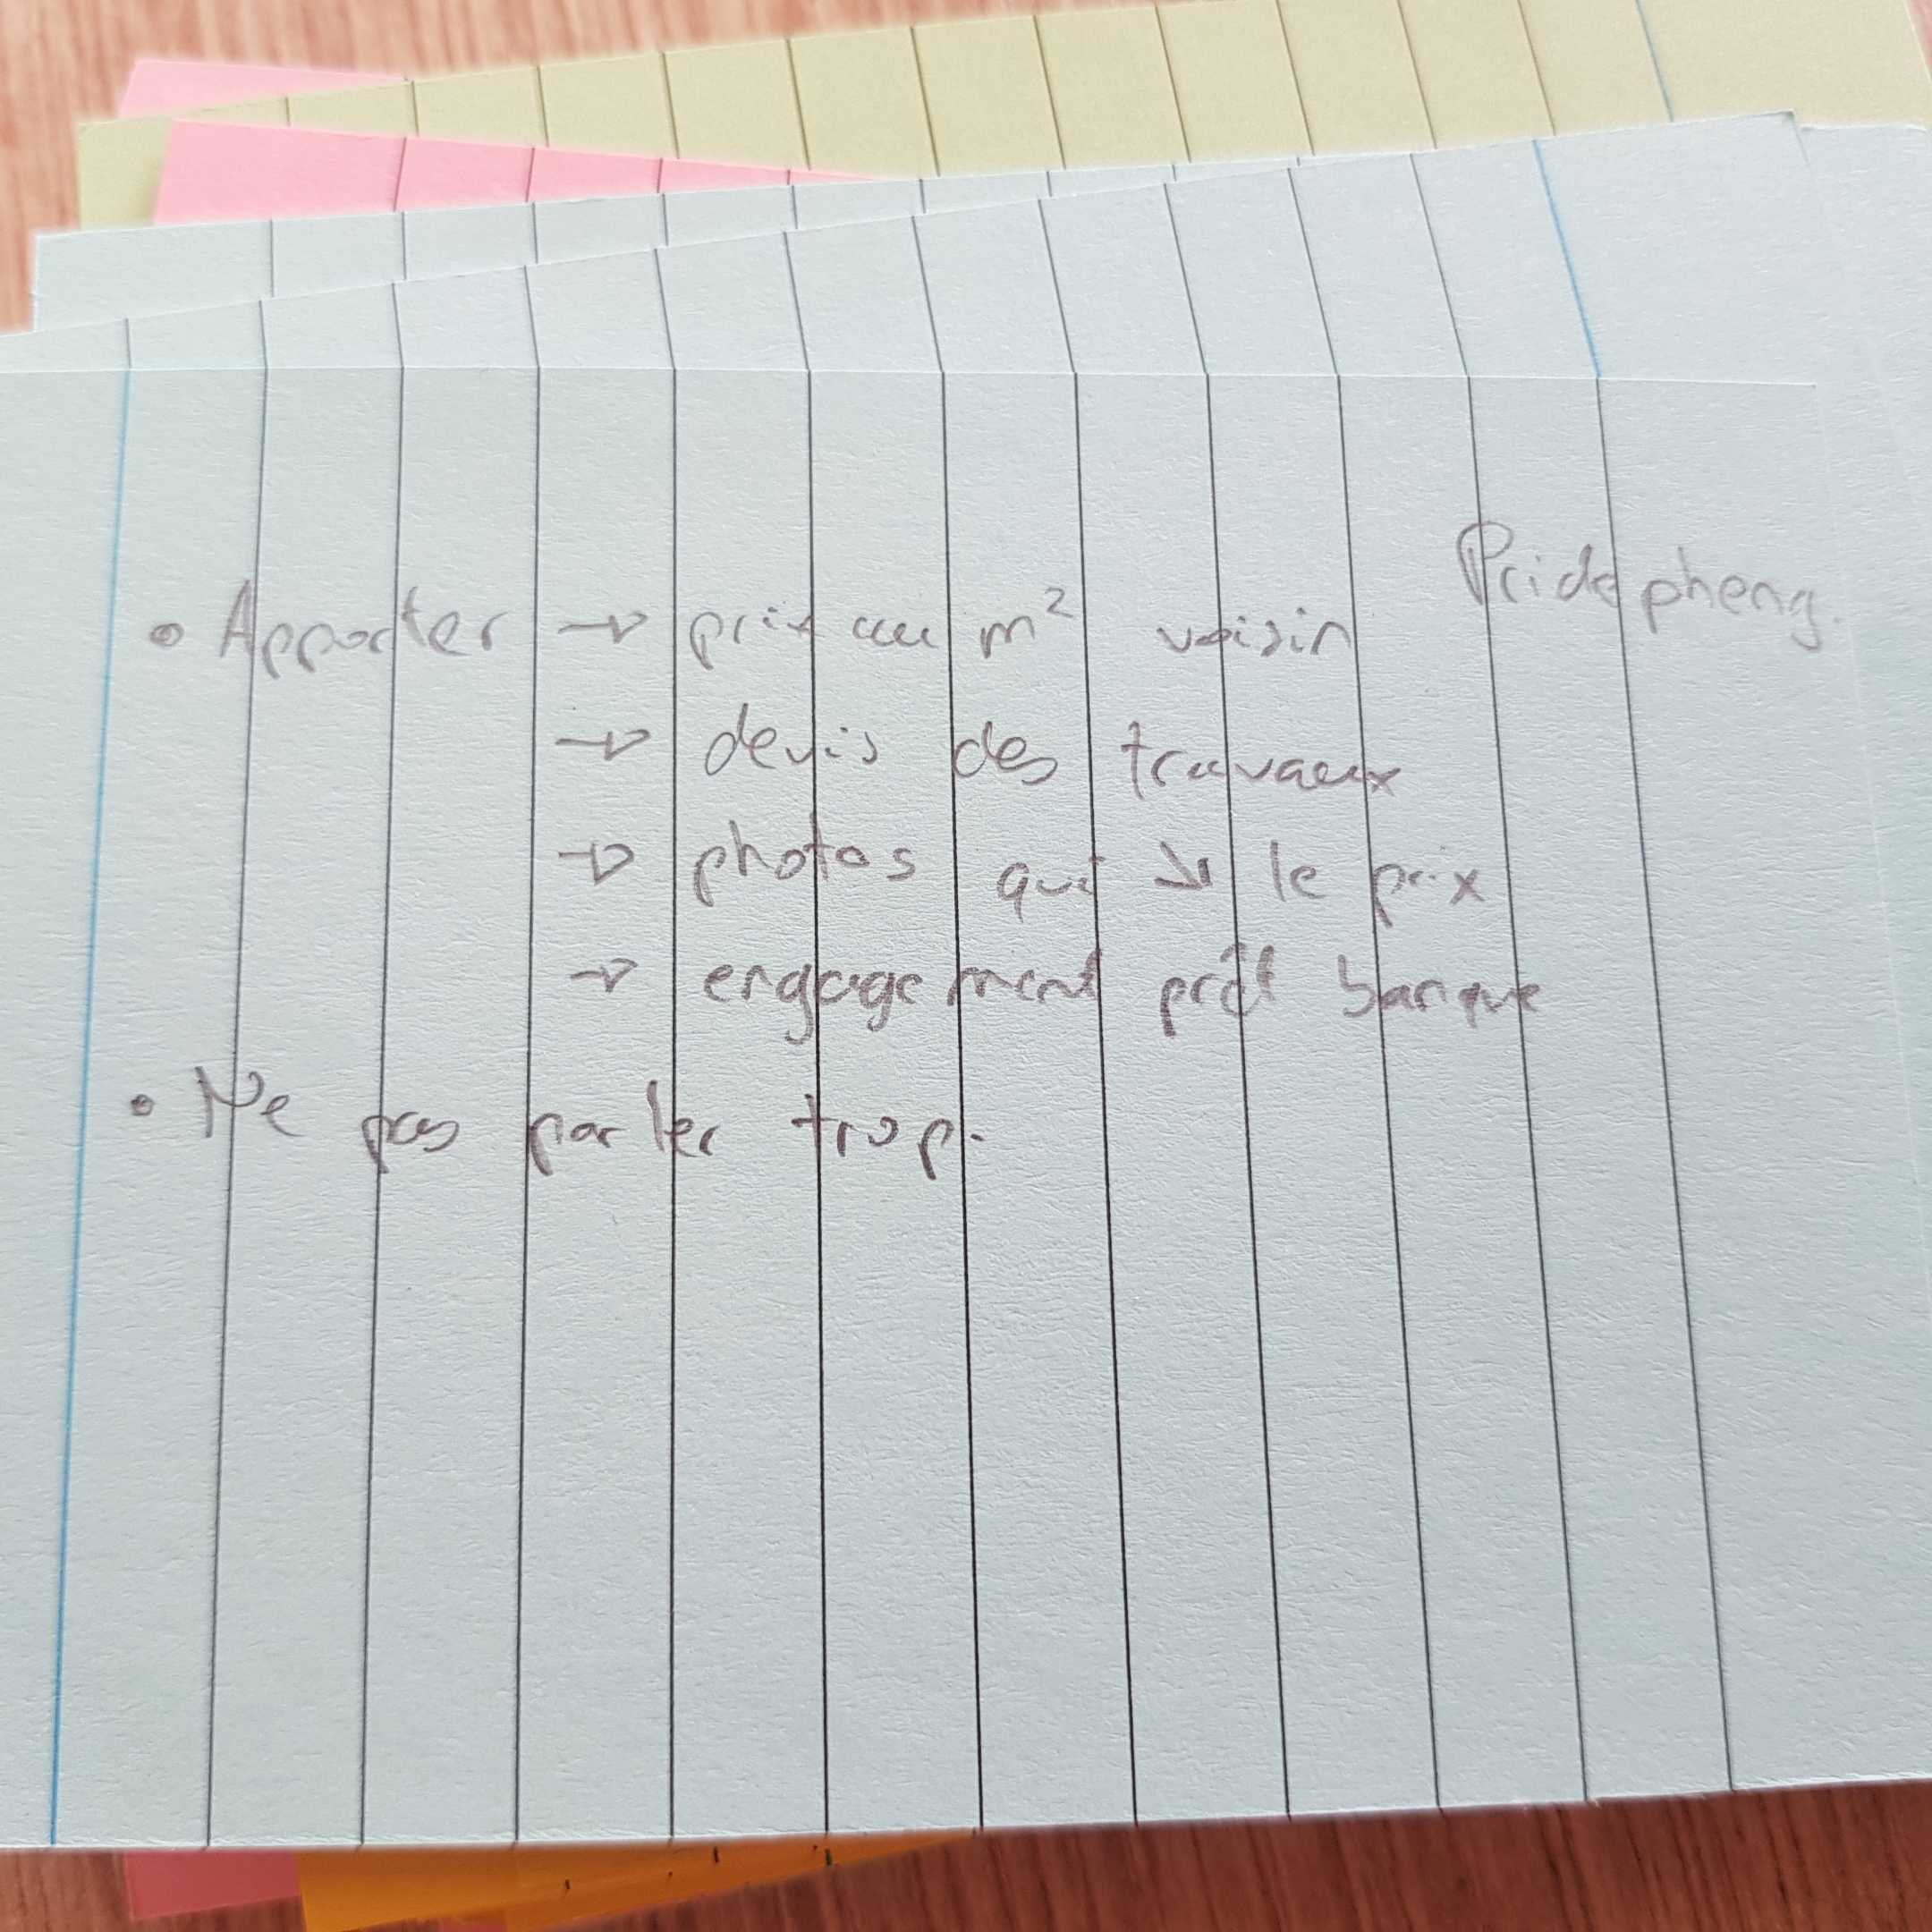 Pridepheng.
• Apporter → prix au m² voisin
→ devis des travaux
→ photos qui ↘ le prix
→ engagement prêt banque
• Ne pas parler trop.